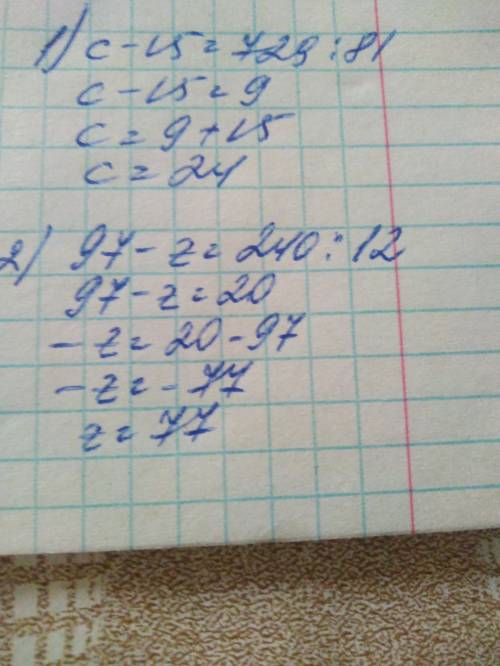 1) c - 15 = 729 : 81
c - 15 = 9
c = 9 + 15
c = 24
2) 97 - z = 240 : 12
97 - z = 20
- z = 20 - 97
- z = - 77
z = 77